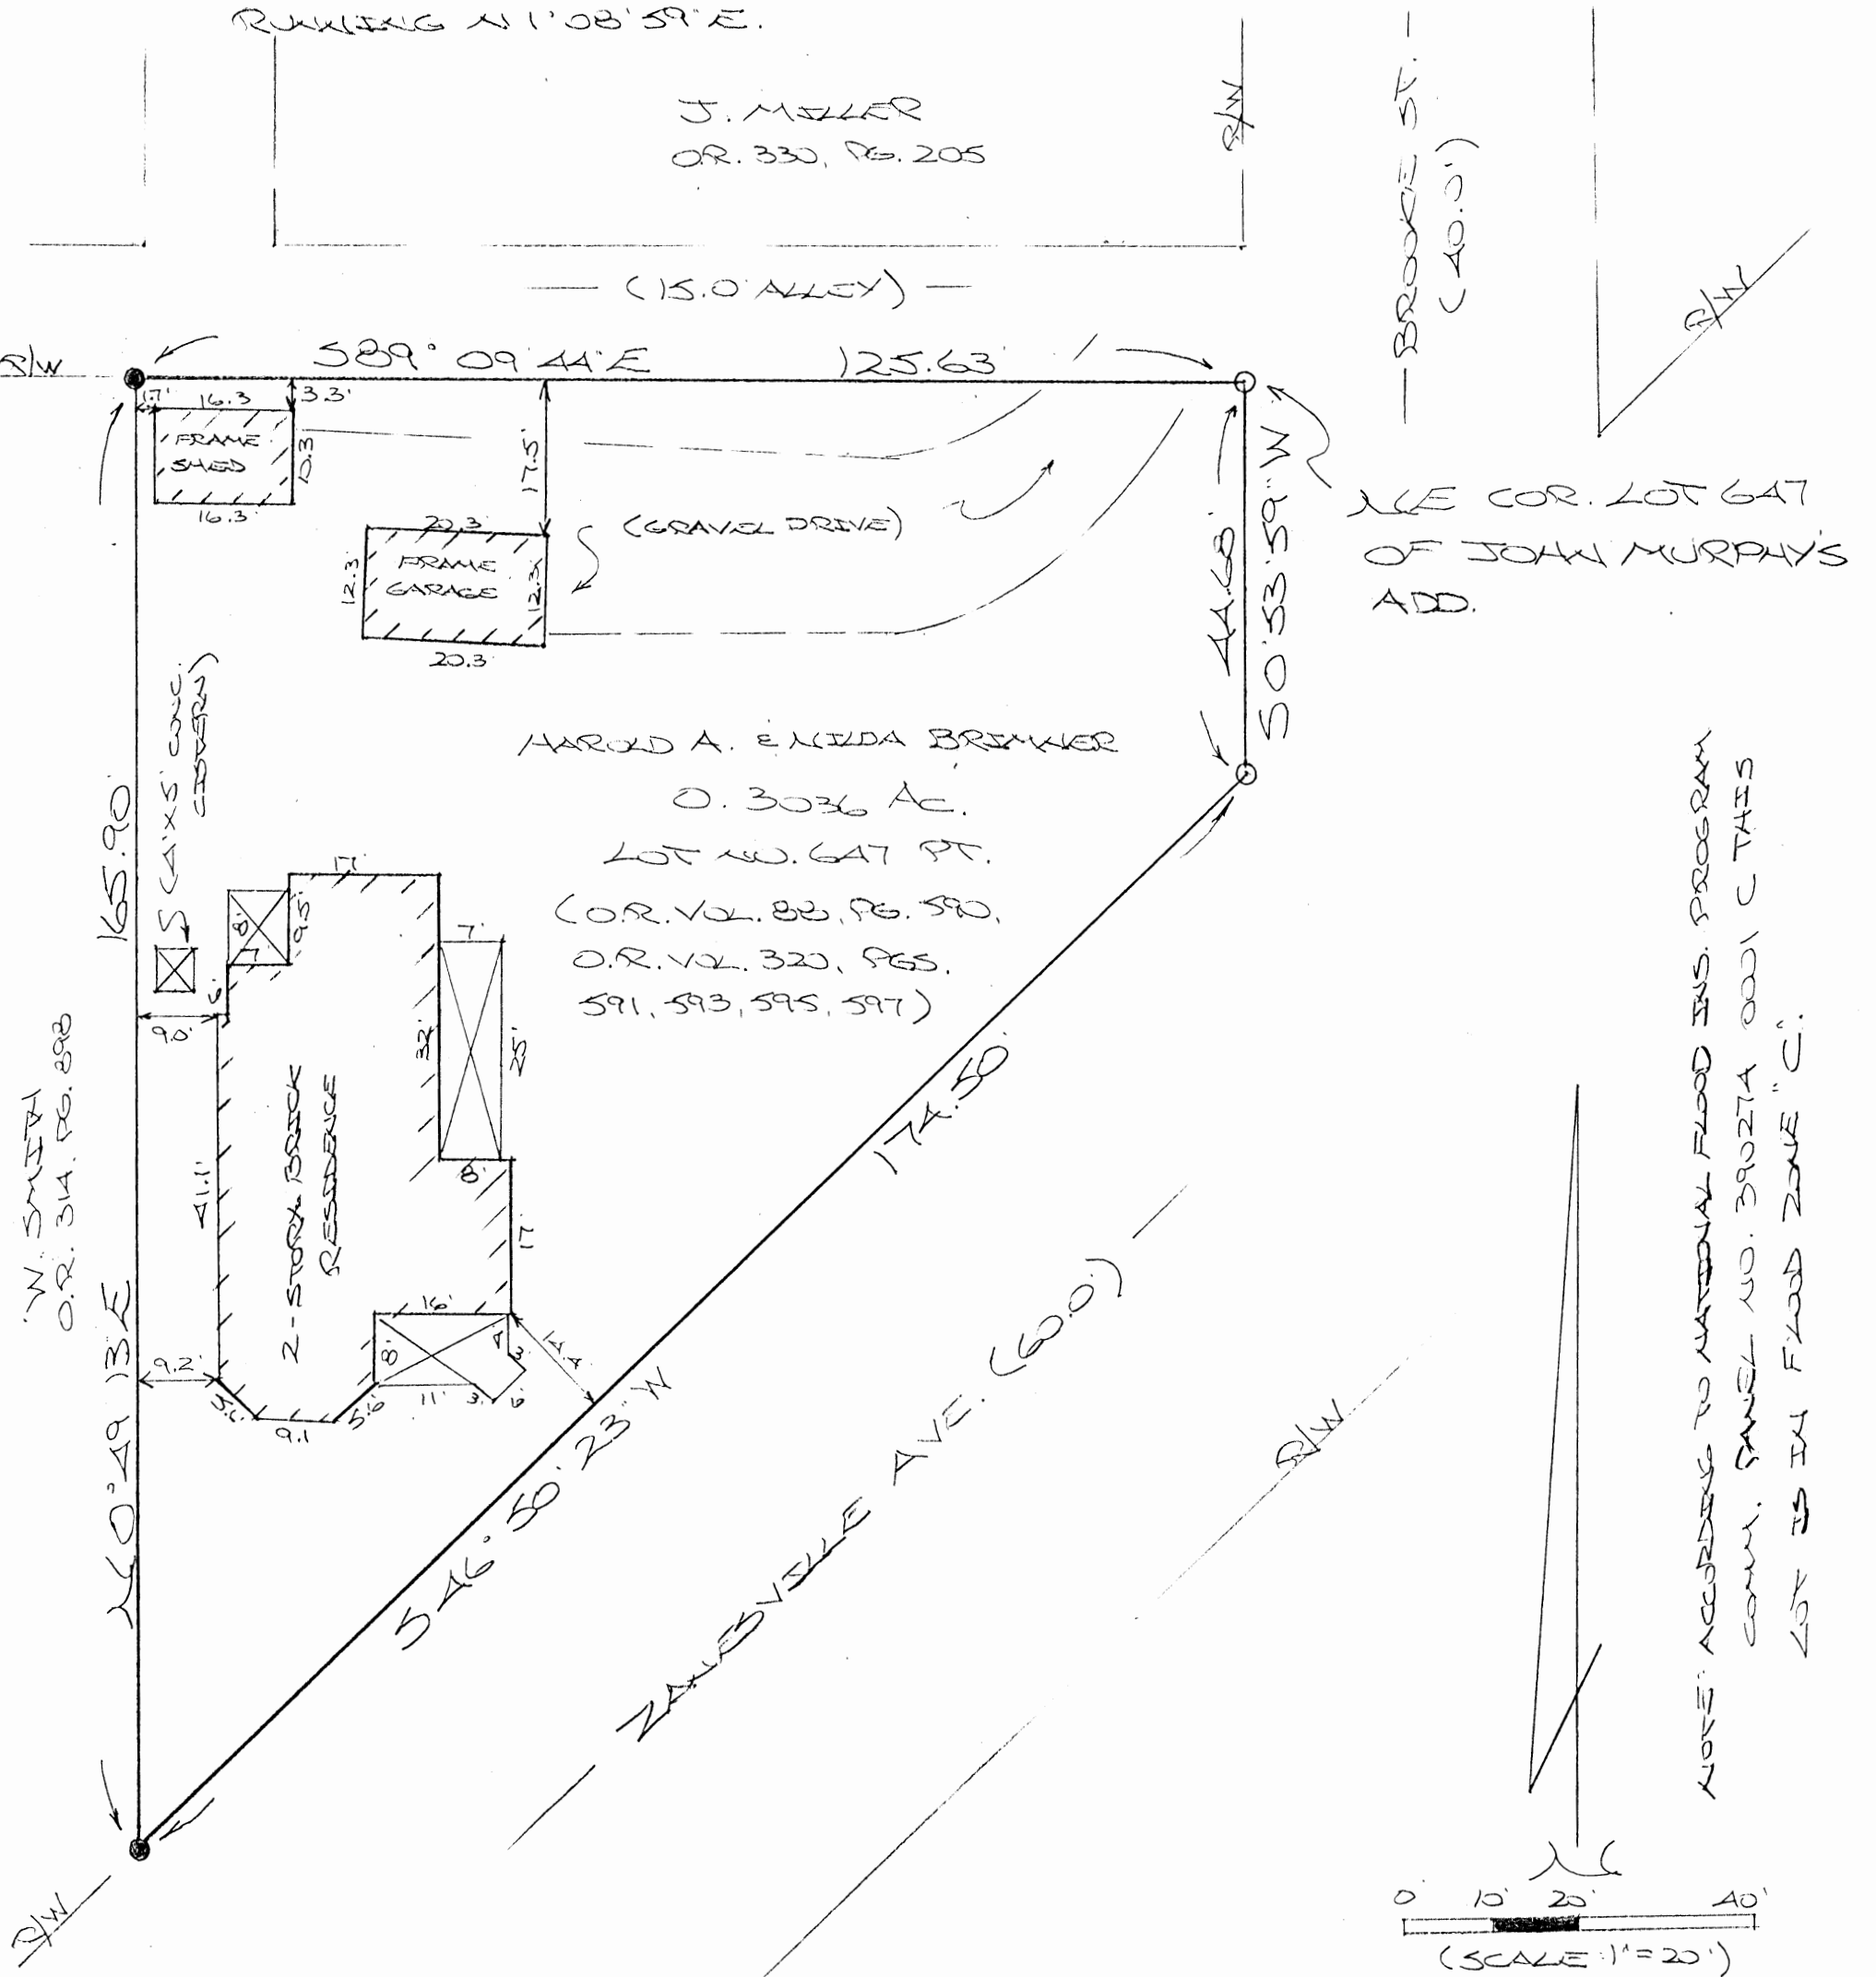 RUNNING N 1°08'59" E.
J. MILLER
O.R. 330, PG. 205
R/W
— BROOKE ST. —
(40.0')
R/W
— (15.0' ALLEY) —
R/W
S89° 09' 44" E 125.63'
1.7'
16.3
3.3'
FRAME
SHED
10.3
16.3'
17.5'
20.3'
FRAME
GARAGE
12.3'
12.3'
20.3'
(GRAVEL DRIVE)
44.68'
S0°53'59" W
NE COR. LOT 647
OF JOHN MURPHY'S
ADD.
(4'X5' CONC.
CISTERN)
HAROLD A. & NILDA BRIMNER
0.3036 AC.
LOT NO. 647 PT.
(O.R. VOL. 88, PG. 590,
O.R. VOL. 320, PGS.
591, 593, 595, 597)
165.90'
N0° 49' 13" E
W. SMITH
O.R. 314, PG. 898
17'
8'
7'
9.5'
6'
9.0'
7'
32'
25'
41.1'
2-STORY BRICK
RESIDENCE
8'
17'
16'
8'
4'
3'
14.4'
9.2'
5.6'
9.1
5.6'
11'
3'
6'
174.50'
S46° 50' 23" W
ZANESVILLE AVE. (60.0')
R/W
R/W
NOTE: ACCORDING TO NATIONAL FLOOD INS. PROGRAM
COMM. PANEL NO. 390274 0001 C THIS
LOT IS IN FLOOD ZONE "C".
N
0' 10' 20' 40'
(SCALE: 1" = 20')